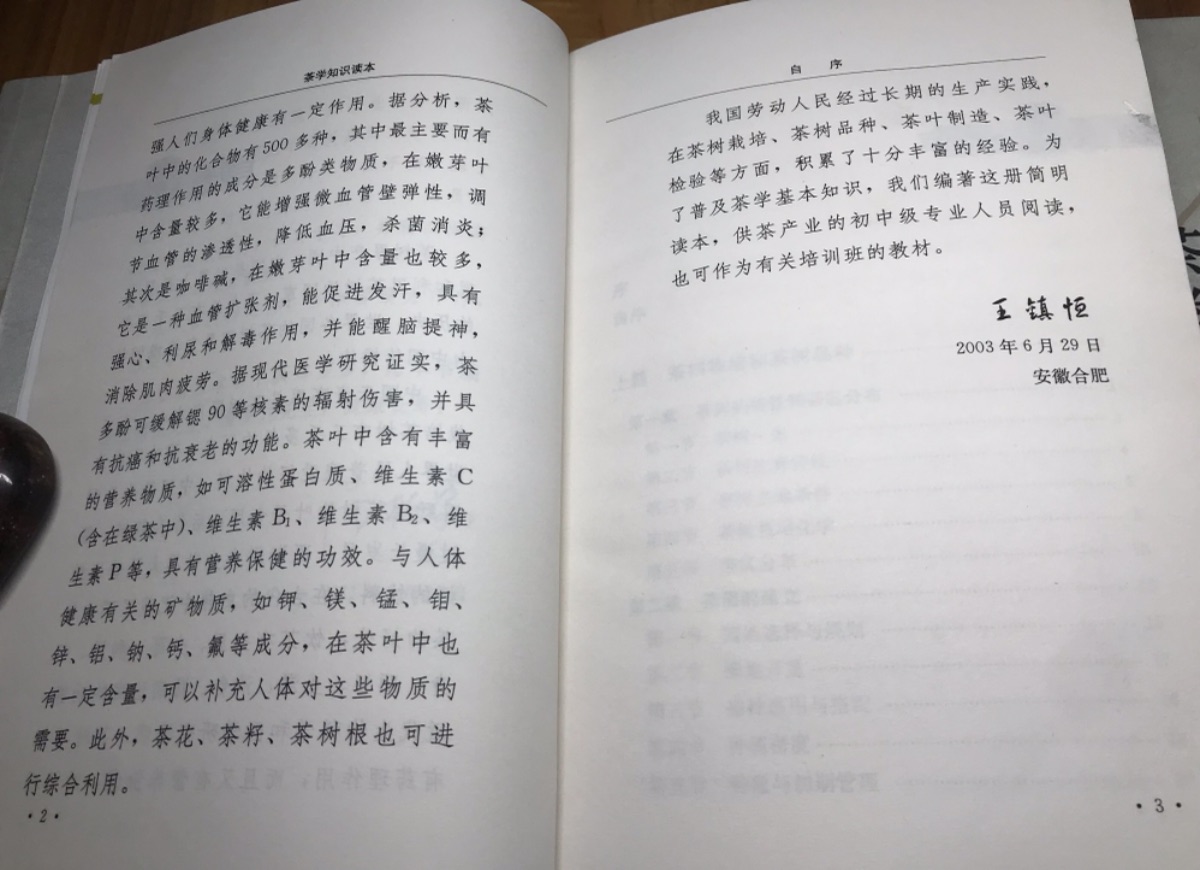 茶学知识读本
强人们身体健康有一定作用。据分析，茶
叶中的化合物有500多种，其中最主要而有
药理作用的成分是多酚类物质，在嫩芽叶
中含量较多，它能增强微血管壁弹性，调
节血管的渗透性，降低血压，杀菌消炎；
其次是咖啡碱，在嫩芽叶中含量也较多，
它是一种血管扩张剂，能促进发汗，具有
强心、利尿和解毒作用，并能醒脑提神，
消除肌肉疲劳。据现代医学研究证实，茶
多酚可缓解锶90等核素的辐射伤害，并具
有抗癌和抗衰老的功能。茶叶中含有丰富
的营养物质，如可溶性蛋白质、维生素C
(含在绿茶中)、维生素B₁、维生素B₂、维
生素P等，具有营养保健的功效。与人体
健康有关的矿物质，如钾、镁、锰、钼、
锌、铝、钠、钙、氟等成分，在茶叶中也
有一定含量，可以补充人体对这些物质的
需要。此外，茶花、茶籽、茶树根也可进
行综合利用。
·2·
自 序
我国劳动人民经过长期的生产实践，
在茶树栽培、茶树品种、茶叶制造、茶叶
检验等方面，积累了十分丰富的经验。为
了普及茶学基本知识，我们编著这册简明
读本，供茶产业的初中级专业人员阅读，
也可作为有关培训班的教材。
王镇恒
2003年6月29日
安徽合肥
·3·